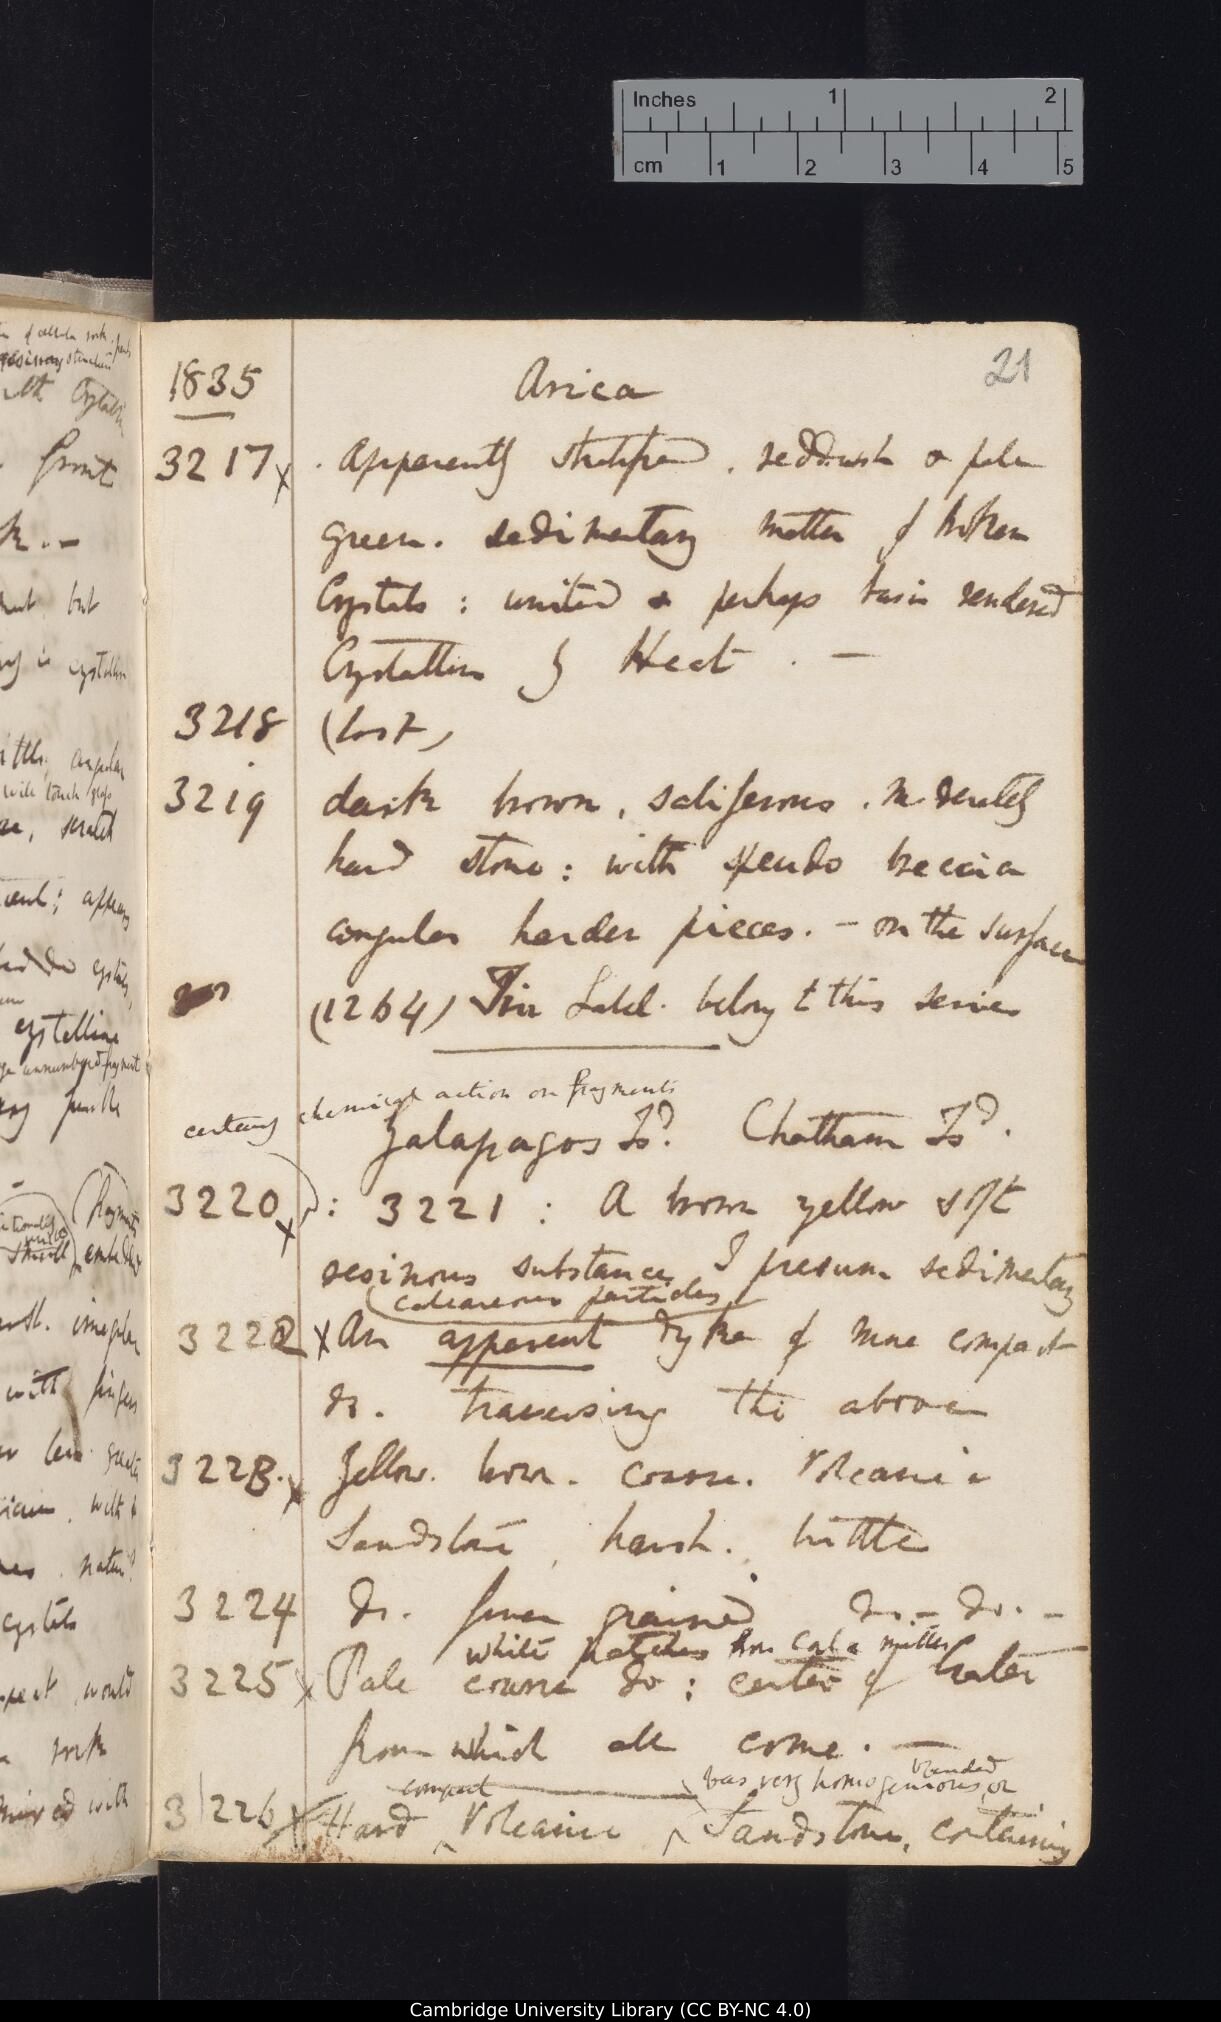 Inches 1 2
cm 1 2 3 4 5
21
1835 Arica
3217 x . Apparently stratified, reddish & pale
green. sedimentary matter of broken
Crystals : united & perhaps basis rendered
Crystalline by Heat . —
3218 (lost)
3219 dark brown, saliferous. moderately
hard stone: with pseudo breccia
angular harder pieces. — on the surface
(1264) Tin Label. belong to this series
certainly chemical action on fragments
Galapagos Isd. Chatham Isd.
3220 x : 3221 : A brown yellow soft
resinous substance, I presume sedimentary
calcareous particles
3222 x An apparent dyke of more compact
do. traversing the above
3223. x Yellow. brown. coarse. Volcanic
Sandstone, harsh. brittle
3224 do. finer grained do. — do. —
white patches from Calc matter
3225 x Pale coarse do : center of Crater
from which all come. —
compact bas very homogenious or blended
3226 x Hard Volcanic Sandstone, containing
front
but
crystalline
angular
scratch
appears
crystalline
irregular
with fingers
crystals
would
mixed with
Cambridge University Library (CC BY-NC 4.0)